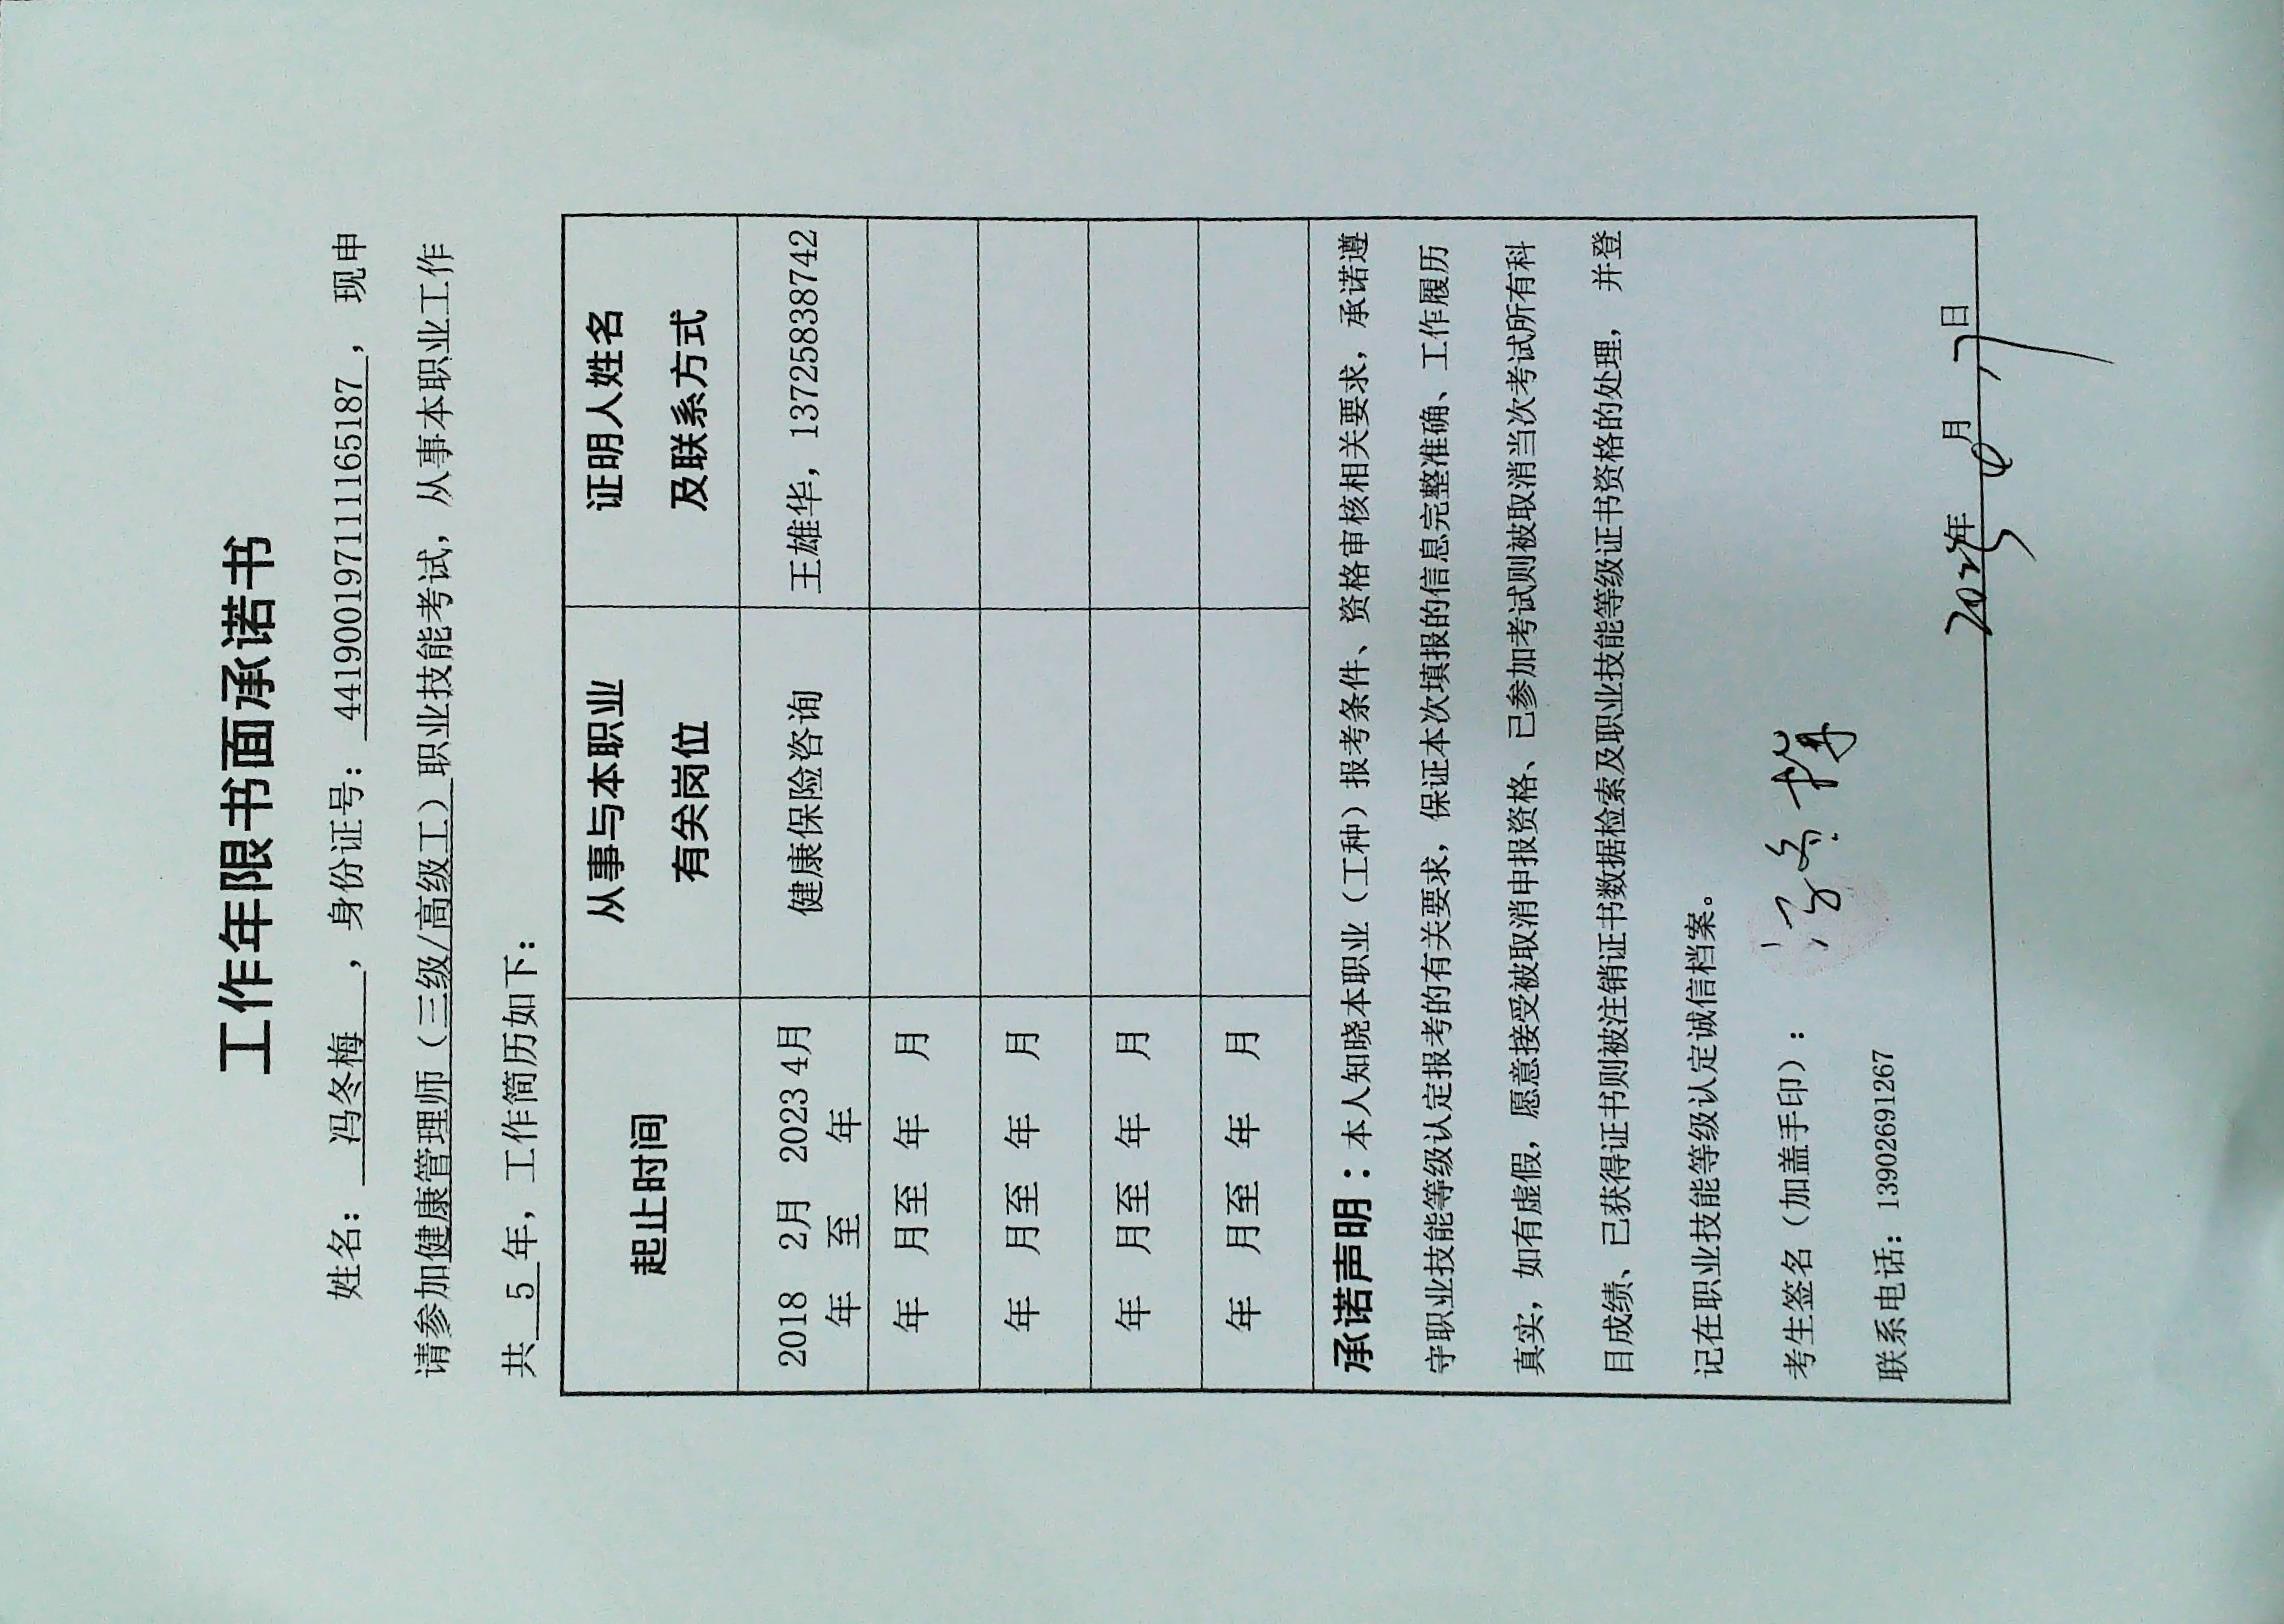 工作年限书面承诺书
姓名： 冯冬梅 ，身份证号： 441900197111165187 ，现申
请参加健康管理师（三级/高级工）职业技能考试，从事本职业工作
共 5 年，工作简历如下：
起止时间 从事与本职业有关岗位 证明人姓名及联系方式
2018年 2月至 2023年 4月 健康保险咨询 王雄华，13725838742
年 月至 年 月
年 月至 年 月
年 月至 年 月
年 月至 年 月
承诺声明：本人知晓本职业（工种）报考条件、资格审核相关要求，承诺遵
守职业技能等级认定报考的有关要求，保证本次填报的信息完整准确、工作履历
真实，如有虚假，愿意接受被取消申报资格、已参加考试则被取消当次考试所有科
目成绩、已获得证书则被注销证书数据检索及职业技能等级证书资格的处理，并登
记在职业技能等级认定诚信档案。
考生签名（加盖手印）： 冯冬梅
联系电话：13902691267
年 月 7日